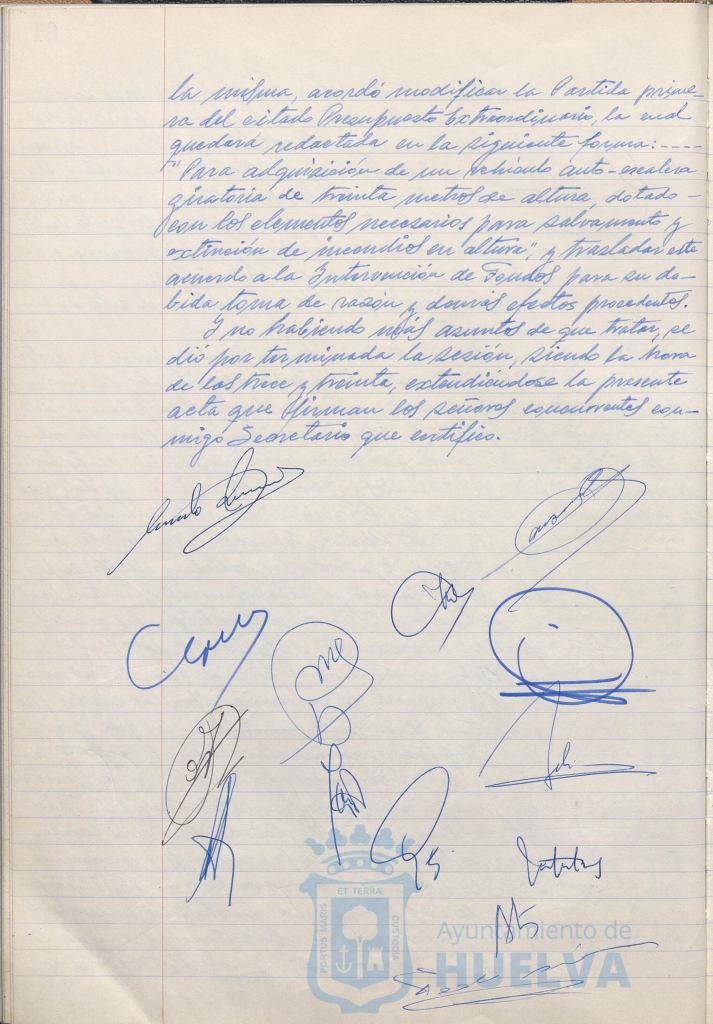 la misma, acordó modificar la Partida prime-
ra del citado Presupuesto Extraordinario, la cual
quedará redactada en la siguiente forma:----
"Para adquisición de un vehículo auto-escalera
giratoria de treinta metros de altura, dotado-
con los elementos necesarios para salvamento y
extinción de incendios en altura", y trasladar este
acuerdo a la Intervención de Fondos para su de-
bida toma de razón y demás efectos procedentes.
Y no habiendo más asuntos de que tratar, se
dió por terminada la sesión, siendo la hora
de las trece y treinta, extendiéndose la presente
acta que firman los señores concurrentes con-
migo Secretario que certifico.
ET TERRÆ
PORTUS MARIS
CUSTODIA
Ayuntamiento de
HUELVA